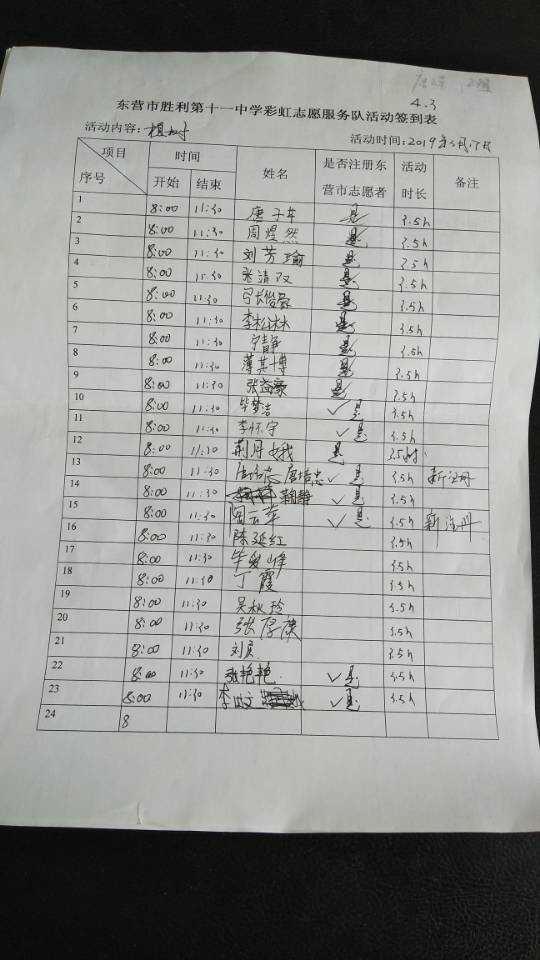 4.3
东营市胜利第十一中学彩虹志愿服务队活动签到表
活动内容: 植树 活动时间:2019年3月17日
项目 序号 时间 开始 结束 姓名 是否注册东营市志愿者 活动时长 备注
1 8:00 11:30 唐子年 是 3.5h
2 8:00 11:30 周煜然 是 3.5h
3 8:00 11:30 刘芳瑜 是 3.5h
4 8:00 11:30 张清双 是 3.5h
5 8:00 11:30 是 3.5h
6 8:00 11:30 李松林 是 3.5h
7 8:00 11:30 宁静 是 3.5h
8 8:00 11:30 薄其博 是 3.5h
9 8:00 11:30 张益豪 是 3.5h
10 8:00 11:30 毕梦洁 ✓是 3.5h
11 8:00 11:30 李怀宇 ✓是 3.5h
12 8:00 11:30 荆月娥 是 3.5h
13 8:00 11:30 唐培忠 ✓是 3.5h 新注册
14 8:00 11:30 鞠静 ✓是 3.5h
15 8:00 11:30 周云军 ✓是 3.5h 新注册
16 8:00 11:30 陈延红 3.5h
17 8:00 11:30 毕爱峰 3.5h
18 8:00 11:30 丁霞 3.5h
19 8:00 11:30 吴秋玲 3.5h
20 8:00 11:30 张厚 3.5h
21 8:00 11:30 刘 3.5h
22 8:00 11:30 张艳艳 ✓是 3.5h
23 8:00 11:30 李 文 ✓是 3.5h
24 8